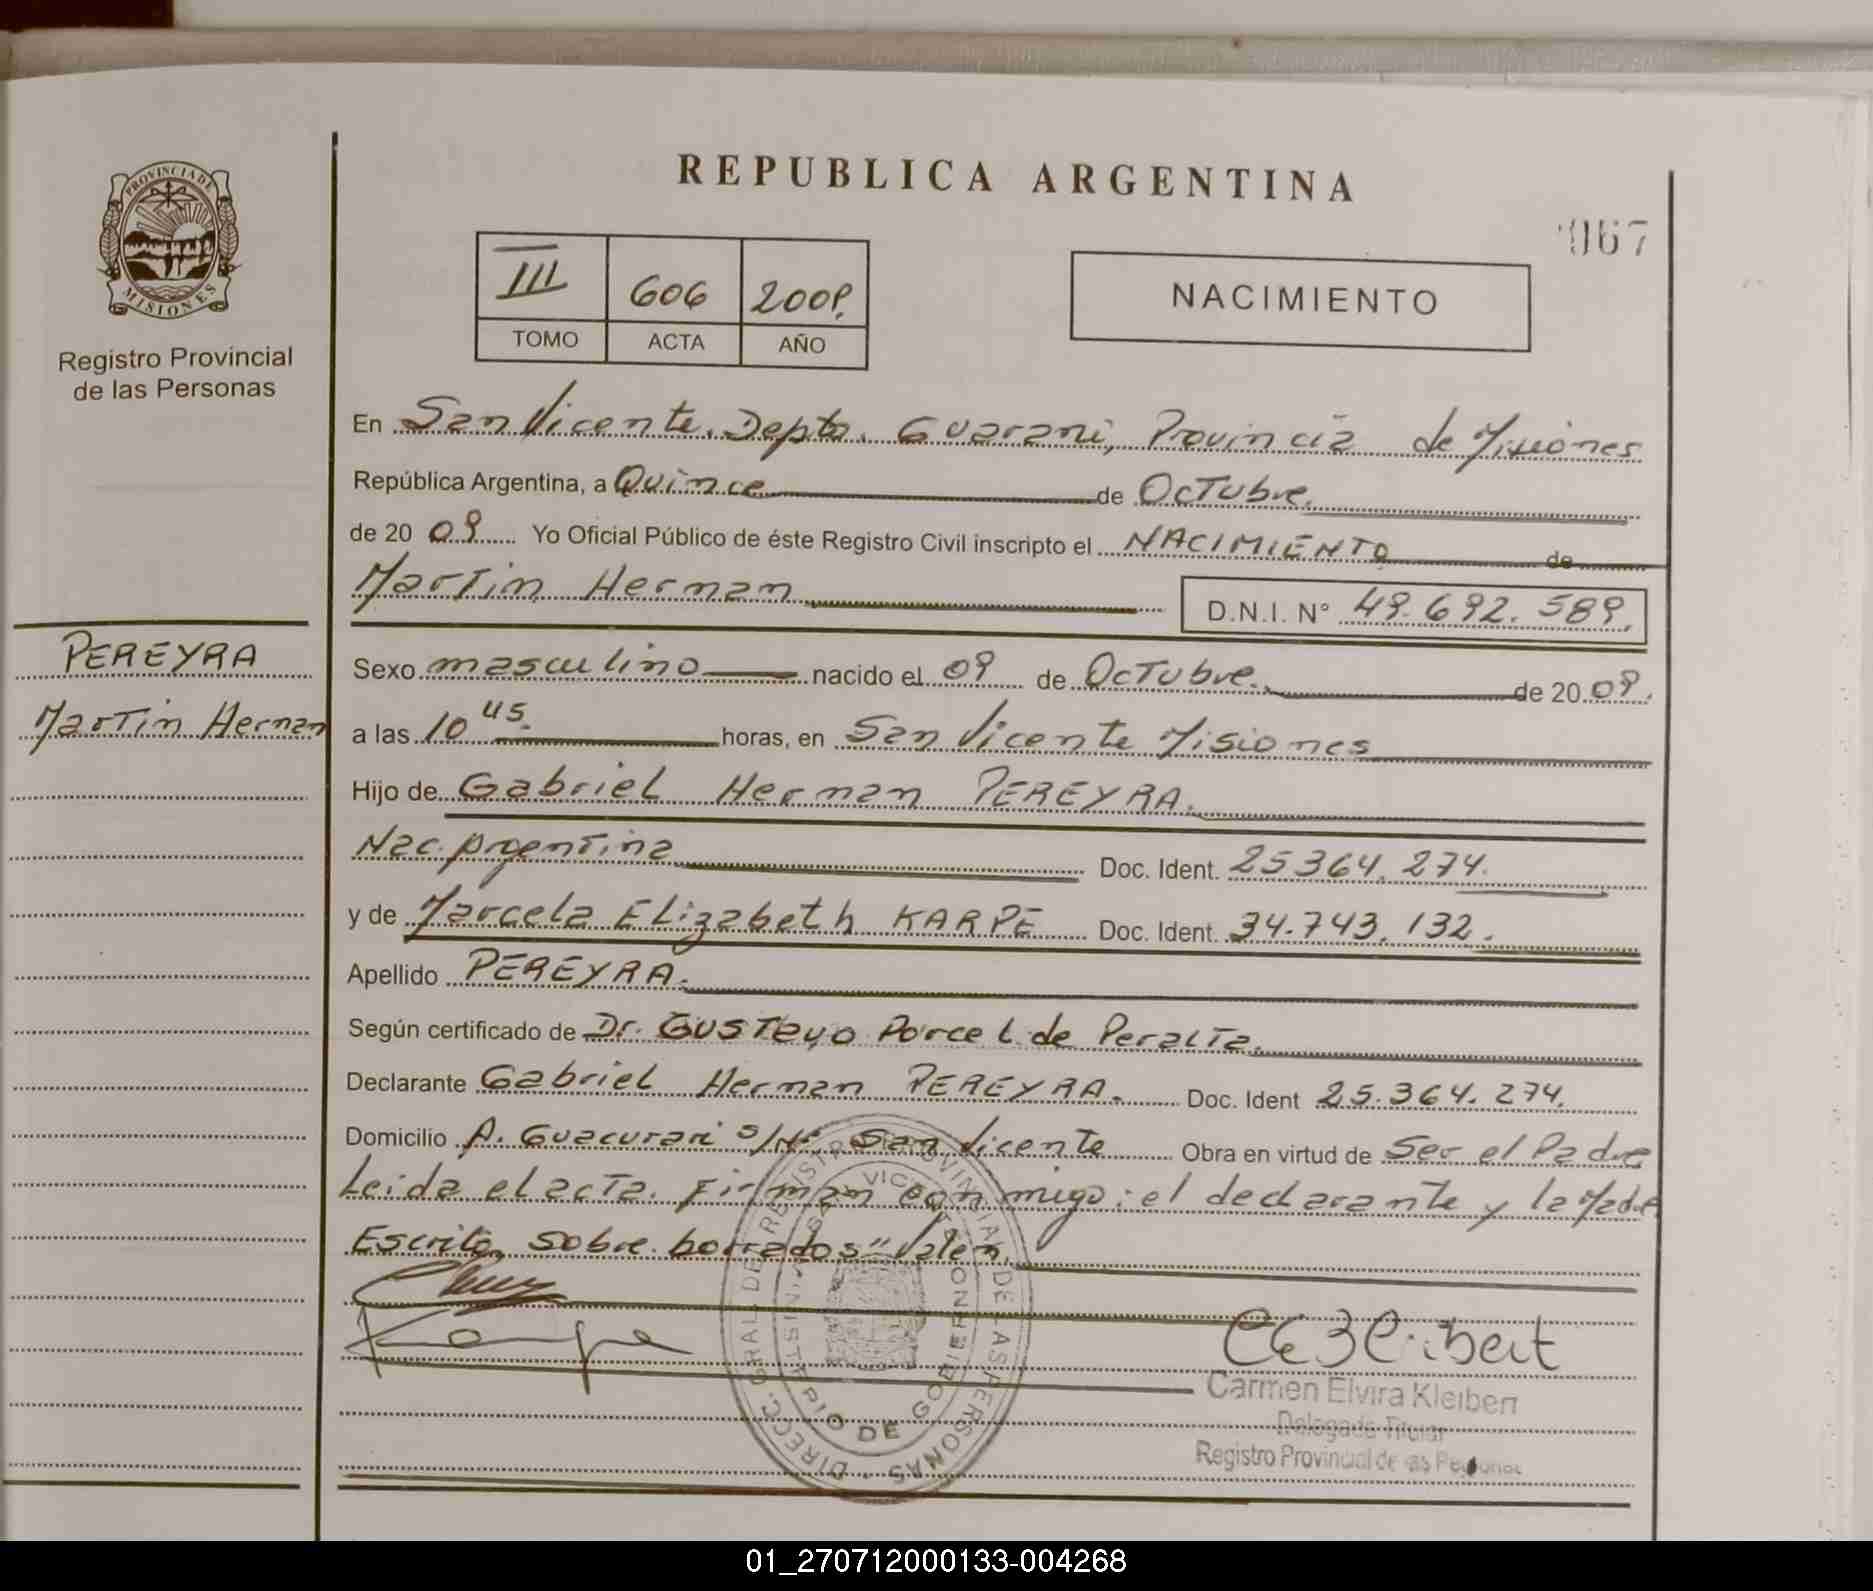 REPUBLICA ARGENTINA
067
PROVINCIA DE MISIONES
Registro Provincial
de las Personas
III 606 2009.
TOMO ACTA AÑO
NACIMIENTO
En San Vicente, Depto. Guarani, Provincia de Misiones
República Argentina, a Quince de Octubre.
de 20 09 Yo Oficial Público de éste Registro Civil inscripto el NACIMIENTO de
Martin Hernan D.N.I. N° 49.692.589.
PEREYRA
Martin Hernan
Sexo masculino nacido el 09 de Octubre. de 20 09.
a las 10 45. horas, en San Vicente Misiones
Hijo de Gabriel Hernan PEREYRA.
Nac. Argentina Doc. Ident. 25364.274.
y de Marcela Elizabeth KARPE Doc. Ident. 34.743.132.
Apellido PEREYRA.
Según certificado de Dr. Gustavo Porcel de Peralta.
Declarante Gabriel Hernan PEREYRA. Doc. Ident 25.364.274.
Domicilio A. Guacurari S/N° San Vicente Obra en virtud de Ser el Padre
Leida el acta. Firman conmigo: el declarante y la Madre
Escrito, sobre borrados" Valen.
DIRECC. GRAL. DE REGISTRO PROVINCIAL DE LAS PERSONAS
SAN VICENTE MINISTERIO DE GOBIERNO
Carmen Elvira Kleibert
Delegada Titular
Registro Provincial de las Personas
01_270712000133-004268